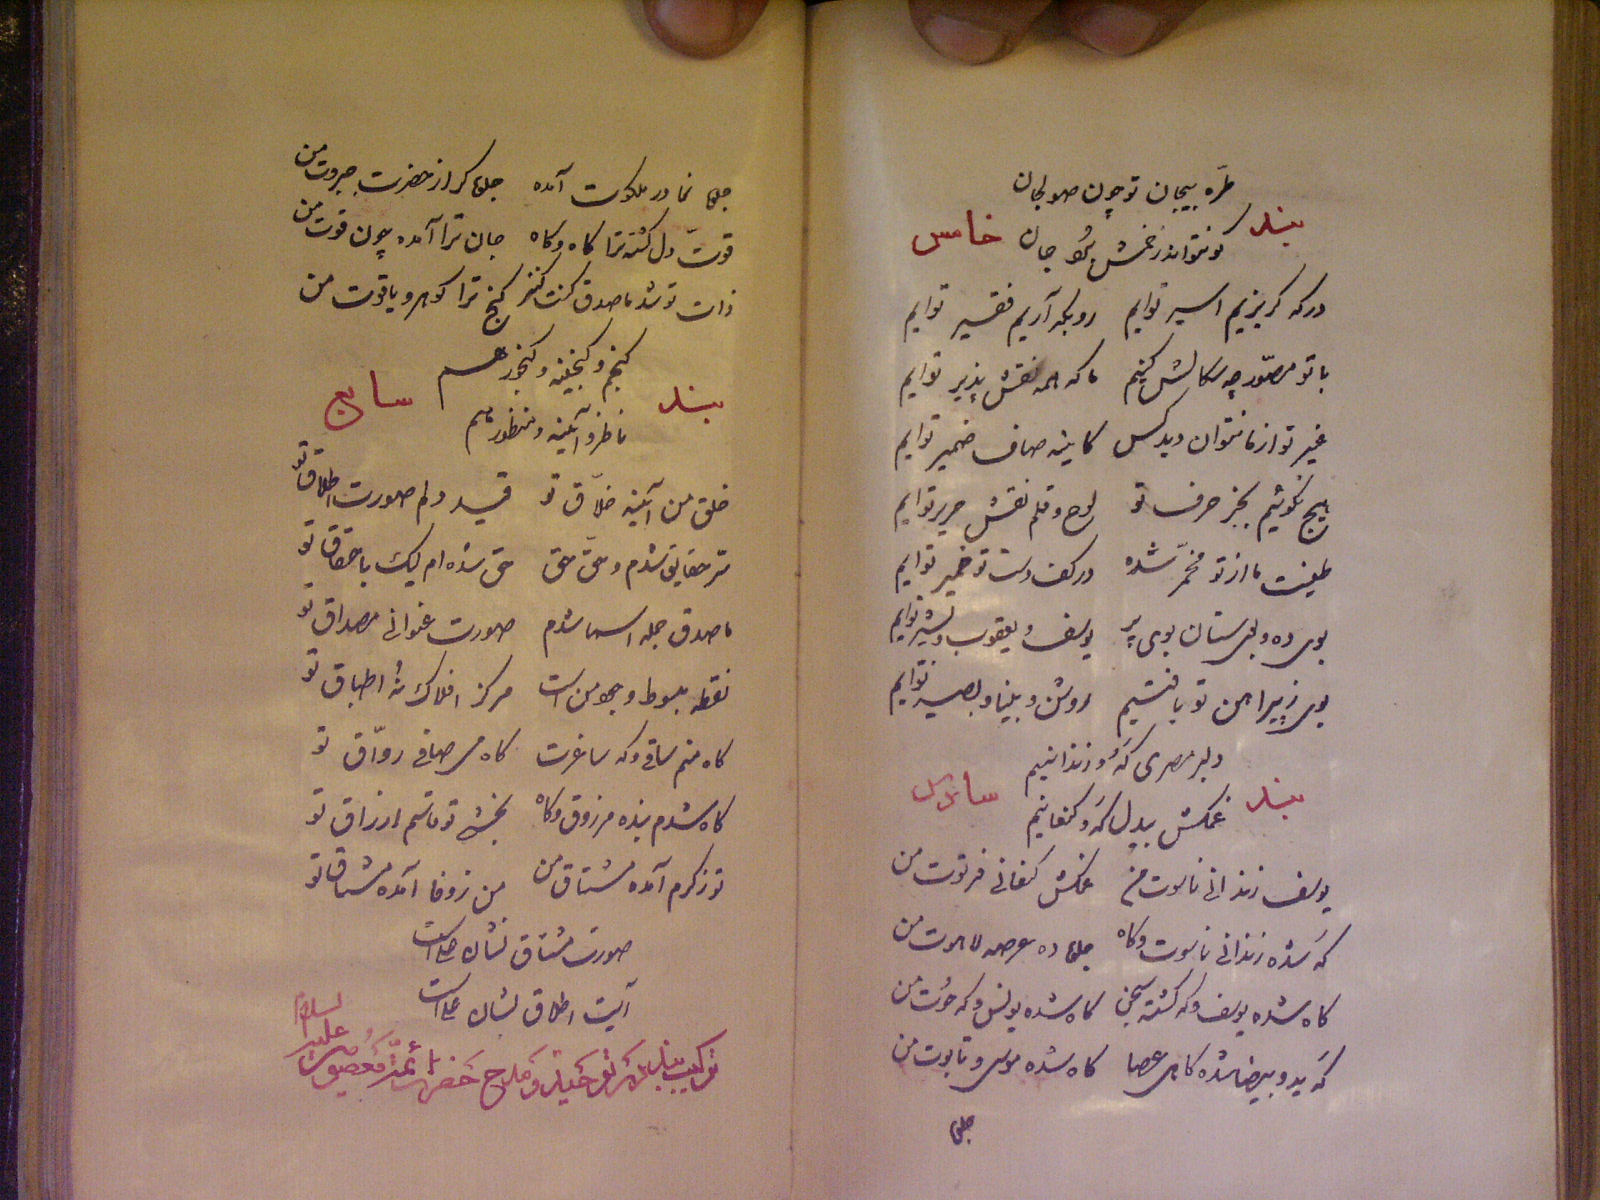 طره پیچان تو چون صولجان
بند خامس
کو نتواند ز خمش برد جان
در که گریزیم اسیر توایم روبکه آریم فقیر توایم
با تو مصور چه سکالش کنیم ما که همه نقش پذیر توایم
غیر تو از ما نتوان دید کس کاینه صاف ضمیر توایم
هیچ نگوئیم بجز حرف تو لوح و قلم نقش حریر توایم
طینت ما از تو مخمّر شده در کف دست تو خمیر توایم
بوی ده و بوی ستان بوی بر یوسف و یعقوب و بشیر توایم
بوی ز پیراهن تو یافتیم روشن و بینا و بصیر توایم
دلبر مصری که و زندانییم
بند سادس
غمکش بیدل که و کنعانیم
یوسف زندانی ناسوت من غمکش کنعانی فرتوت من
که شده زندانی ناسوت و کاه جلوه ده عرصه لاهوت من
کاه شده یوسف و که کشته سجن کاه شده یونس و که حوت من
که ید و بیضا شده کاهی عصا کاه شده موسی و تابوت من
جلوه
جلوه نما در ملکوت آمده جلوه کر از حضرت جبروت من
قوت دل کشته ترا کاه و کاه جان ترا آمده چون قوت من
ذات تو شد ماصدق کنت کنز کنج ترا کوهر و یاقوت من
کنج و کنجینه و کنجور هم
بند سابع
ناظر و آئینه و منظور هم
خلق من آئینه خلّاق تو قید دلم صورت اطلاق تو
سر حقایق شدم و حقّ حق حق شده ام لیک باحقاق تو
ماصدق جمله اسما شدم صورت عنوانی مصداق تو
نقطه مبسوط وجود من است مرکز افلاک نه اطباق تو
کاه منم ساقی و که ساغرت کاه می صافی روّاق تو
کاه شدم بنده مرزوق و کاه بخشی تو قاسم ارزاق تو
تو ز کرم آمده مشتاق من من ز وفا آمده مشتاق تو
صورت مشتاق نشان خداست
آیت اطلاق نشان خداست
ترکیب بند در توحید و مدح حضرات ائمه معصومین علیهم السلام